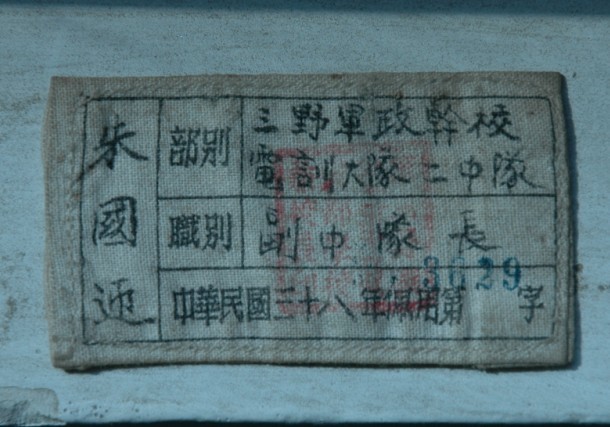 朱國
部別
三野軍政幹校
電訓大隊二中隊
職別
副中隊長
中華民國三十八年佩用第3629字